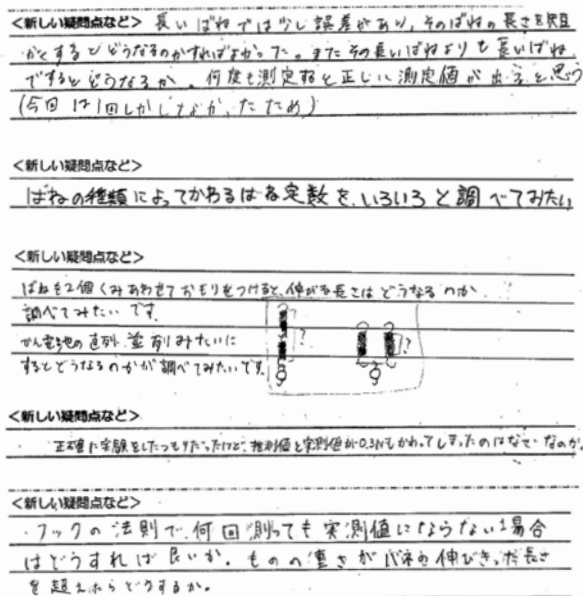 <新しい疑問点など> 長いばねでは少し誤差があり、そのばねの長さを短
かくするとどうなるのかすればよかった。またその長いばねよりも長いばね
ですると、どうなるか。何度も測定すると正しい測定値が出ると思う
(今回は1回しかしなかったため)
<新しい疑問点など>
ばねの種類によってかわるばね定数を、いろいろと調べてみたい
<新しい疑問点など>
ばねを2個くみあわせておもりをつけると、伸びる長さはどうなるのか
調べてみたいです。
かん電池の直列、並列みたいに
するとどうなるのかが調べてみたいです。
?
?
<新しい疑問点など>
正確に実験をしたつもりだったけど、推測値と実測値が0.3Nもかわってしまったのはなぜなのか。
<新しい疑問点など>
・フックの法則で、何回測っても実測値にならない場合
はどうすれば良いか。ものの重さがバネの伸びきった長さ
を超えたらどうするか。